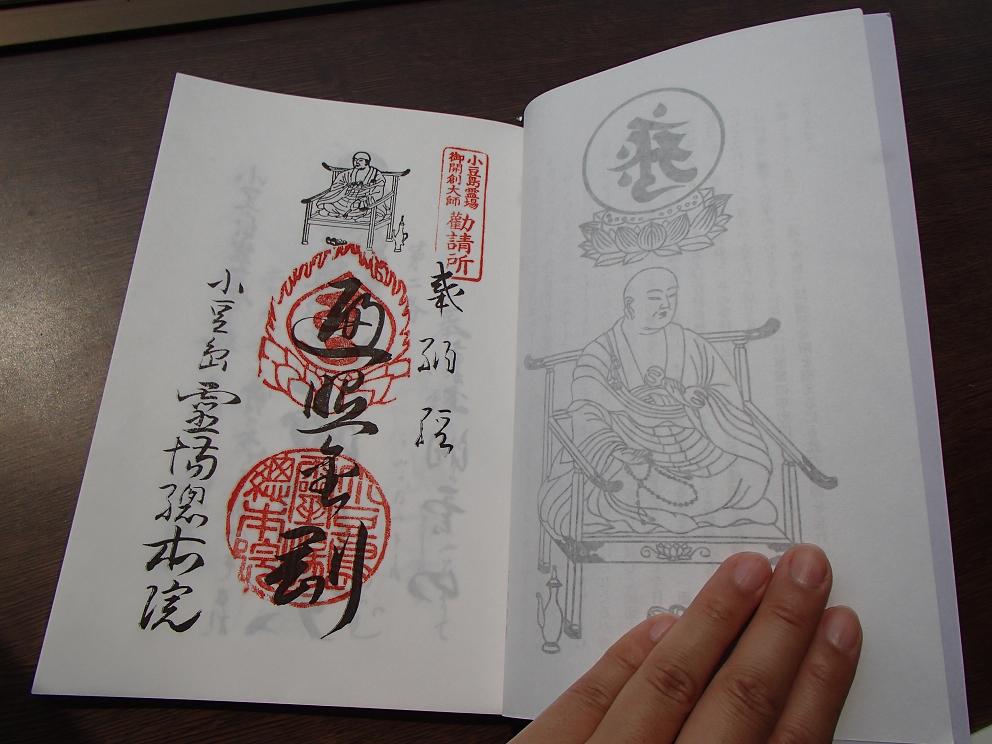 小豆島霊場
御開創大師
勸請所
奉納経
遍照金剛
小豆島
靈場
總本院
小豆島霊場總本院